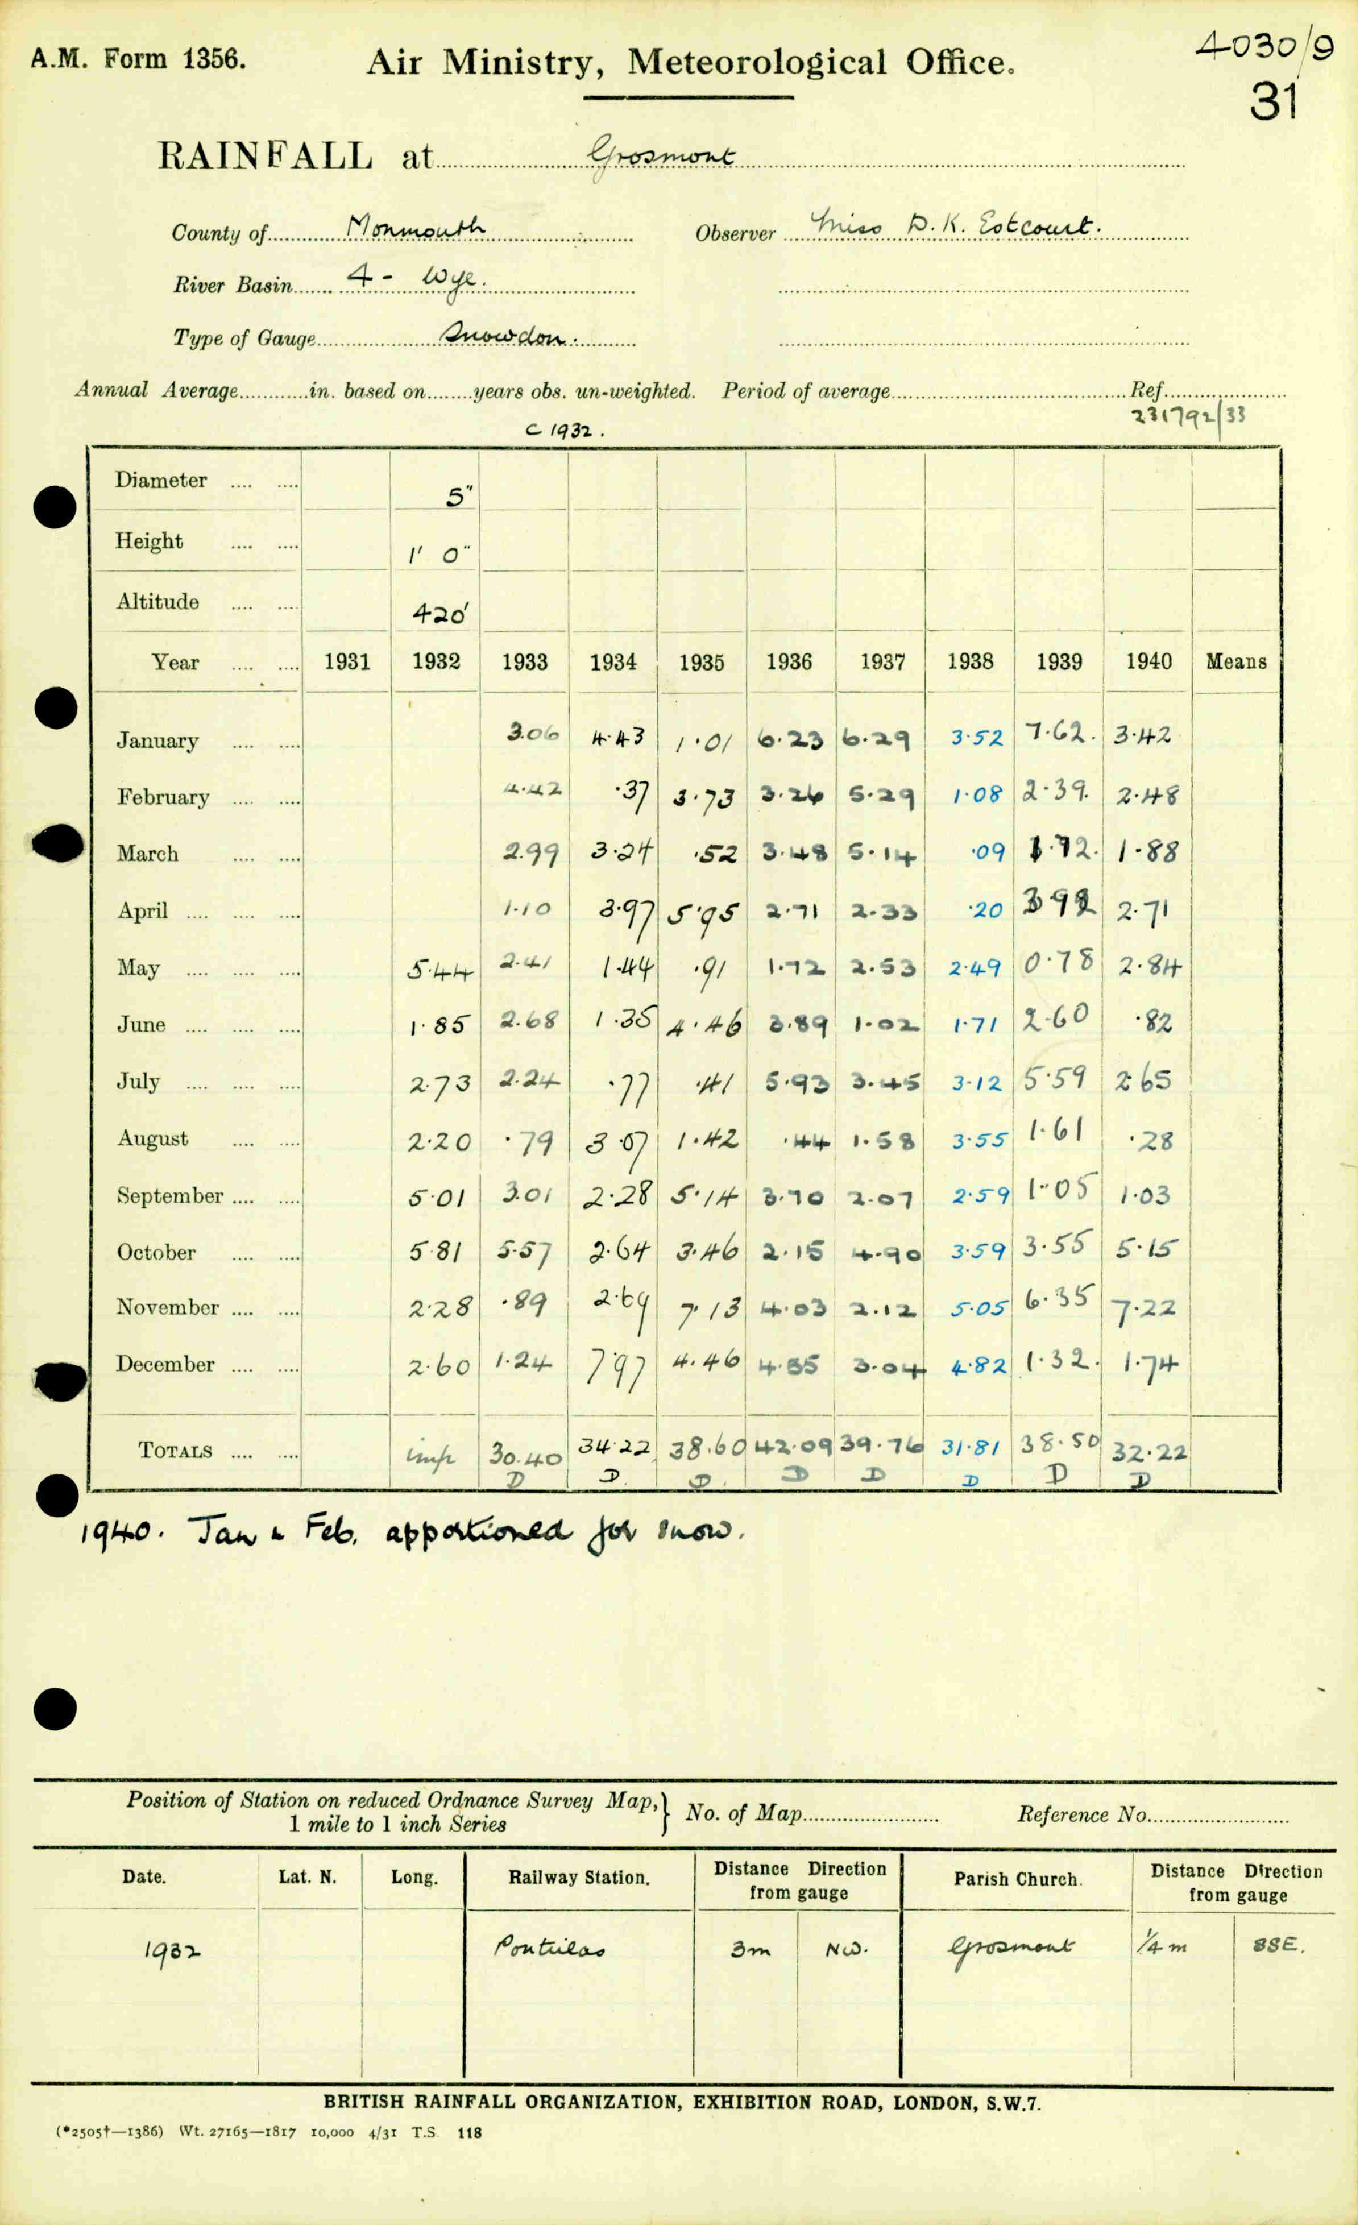 A.M. Form 1356.
Air Ministry, Meteorological Office.
4030/9
31
RAINFALL at Grosmont
County of Monmouth Observer Miss D. K. Estcourt.
River Basin 4 - Wye.
Type of Gauge Snowdon.
Annual Average in. based on years obs. un-weighted. Period of average Ref.
231792/33
c 1932.
Diameter 5"
Height 1' 0"
Altitude 420'
Year 1931 1932 1933 1934 1935 1936 1937 1938 1939 1940 Means
January 3.06 4.43 1.01 6.23 6.29 3.52 7.62. 3.42
February 4.42 .37 3.73 3.26 5.29 1.08 2.39. 2.48
March 2.99 3.24 .52 3.48 5.14 .09 1.72. 1.88
April 1.10 3.97 5.95 2.71 2.33 .20 3.92 2.71
May 5.44 2.41 1.44 .91 1.72 2.53 2.49 0.78 2.84
June 1.85 2.68 1.35 4.46 3.89 1.02 1.71 2.60 .82
July 2.73 2.24 .77 .41 5.93 3.45 3.12 5.59 2.65
August 2.20 .79 3.07 1.42 .44 1.58 3.55 1.61 .28
September 5.01 3.01 2.28 5.14 3.70 2.07 2.59 1.05 1.03
October 5.81 5.57 2.64 3.46 2.15 4.90 3.59 3.55 5.15
November 2.28 .89 2.69 7.13 4.03 2.12 5.05 6.35 7.22
December 2.60 1.24 7.97 4.46 4.55 3.04 4.82 1.32. 1.74
TOTALS imp 30.40 34.22 38.60 42.09 39.76 31.81 38.50 32.22
D D. D. D D D D D
1940. Jan & Feb. apportioned for snow.
Position of Station on reduced Ordnance Survey Map,
1 mile to 1 inch Series } No. of Map Reference No.
Date. Lat. N. Long. Railway Station. Distance Direction from gauge Parish Church. Distance Direction from gauge
1932 Pontrilas 3m NW. Grosmont 1/4 m SSE.
BRITISH RAINFALL ORGANIZATION, EXHIBITION ROAD, LONDON, S.W.7.
(*2505†—1386) Wt. 27165—1817 10,000 4/31 T.S. 118